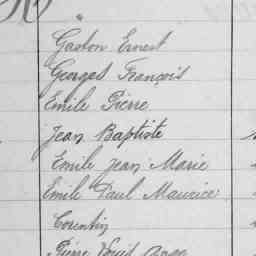 Gaston Ernest
Georges François
Emile Pierre
Jean Baptiste
Emile Jean Marie
Emile Paul Maurice
Corentin
Pierre Louis Ange